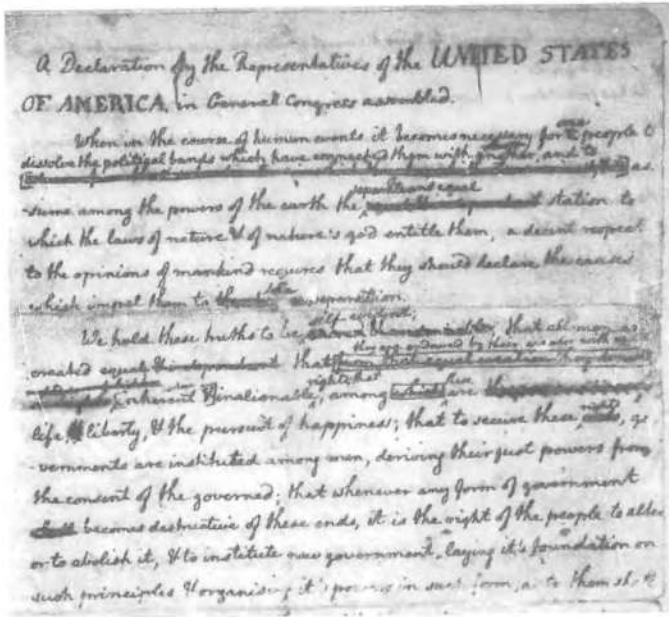 A Declaration by the Representatives of the UNITED STATES
OF AMERICA, in General Congress assembled.
When in the course of human events it becomes necessary for one people to
dissolve the political bands which have connected them with another, and to
as
-sume among the powers of the earth the separate and equal station to
which the laws of nature & of nature's god entitle them, a decent respect
to the opinions of mankind requires that they should declare the causes
which impel them to the separation.
We hold these truths to be self evident; that all men are
created equal & independent that they are endowed by their creator with
inherent & inalienable rights; that among which these are
life, & liberty, & the pursuit of happiness; that to secure these rights, go
-vernments are instituted among men, deriving their just powers from
the consent of the governed; that whenever any form of government
shall becomes destructive of these ends, it is the right of the people to alter
or to abolish it, & to institute new government, laying it's foundation on
such principles & organising it's powers in such form, as to them sh